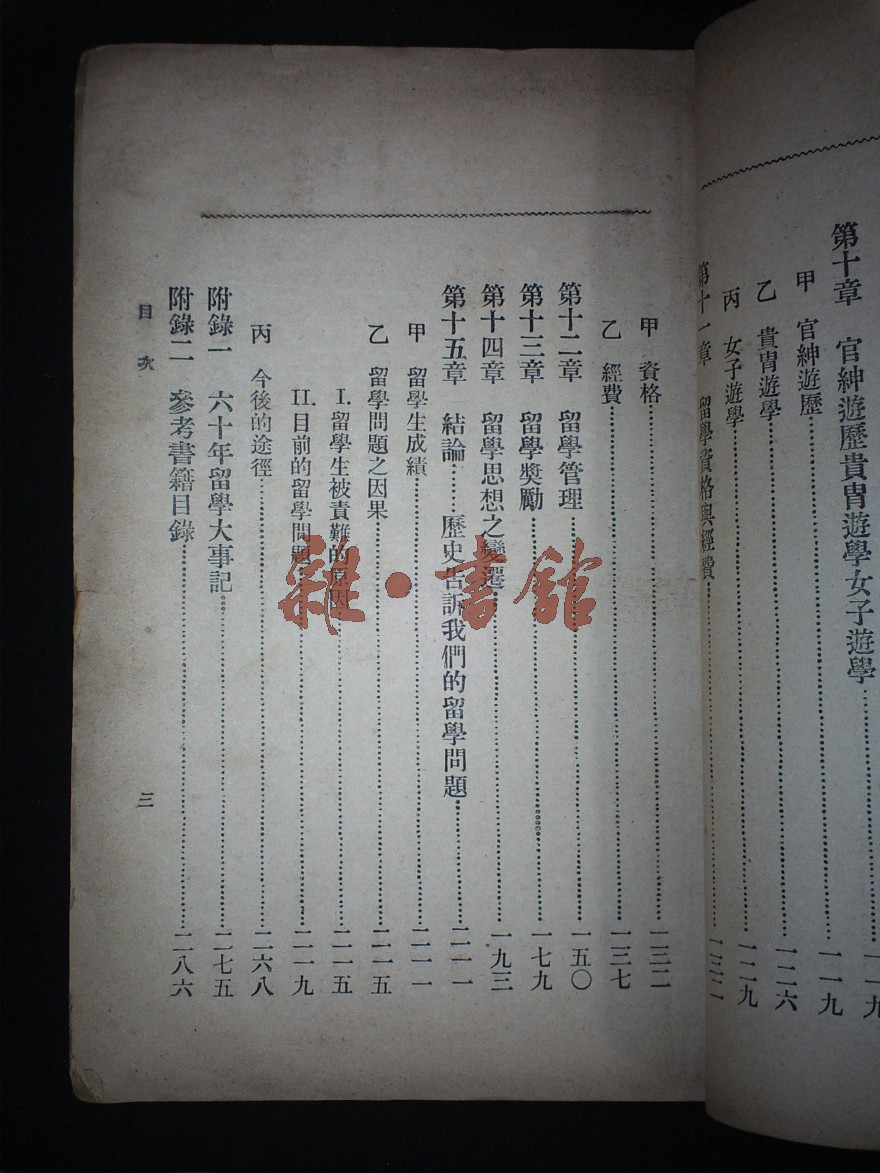 第十章　官紳遊歷貴胄遊學女子遊學……一一九
甲　官紳遊歷……一一九
乙　貴胄遊學……一二六
丙　女子遊學……一二九
第十一章　留學資格與經費……一三二
甲　資格……一三二
乙　經費……一三七
第十二章　留學管理……一五〇
第十三章　留學獎勵……一七九
第十四章　留學思想之變遷……一九三
第十五章　結論……歷史告訴我們的留學問題……二一一
甲　留學生成績……二一一
乙　留學問題之因果……二一五
I.留學生被責難的原因……二一五
II.目前的留學問題……二一九
丙　今後的途徑……二六八
附錄一　六十年留學大事記……二七五
附錄二　參考書籍目錄……二八六
目次
三
雜·書館